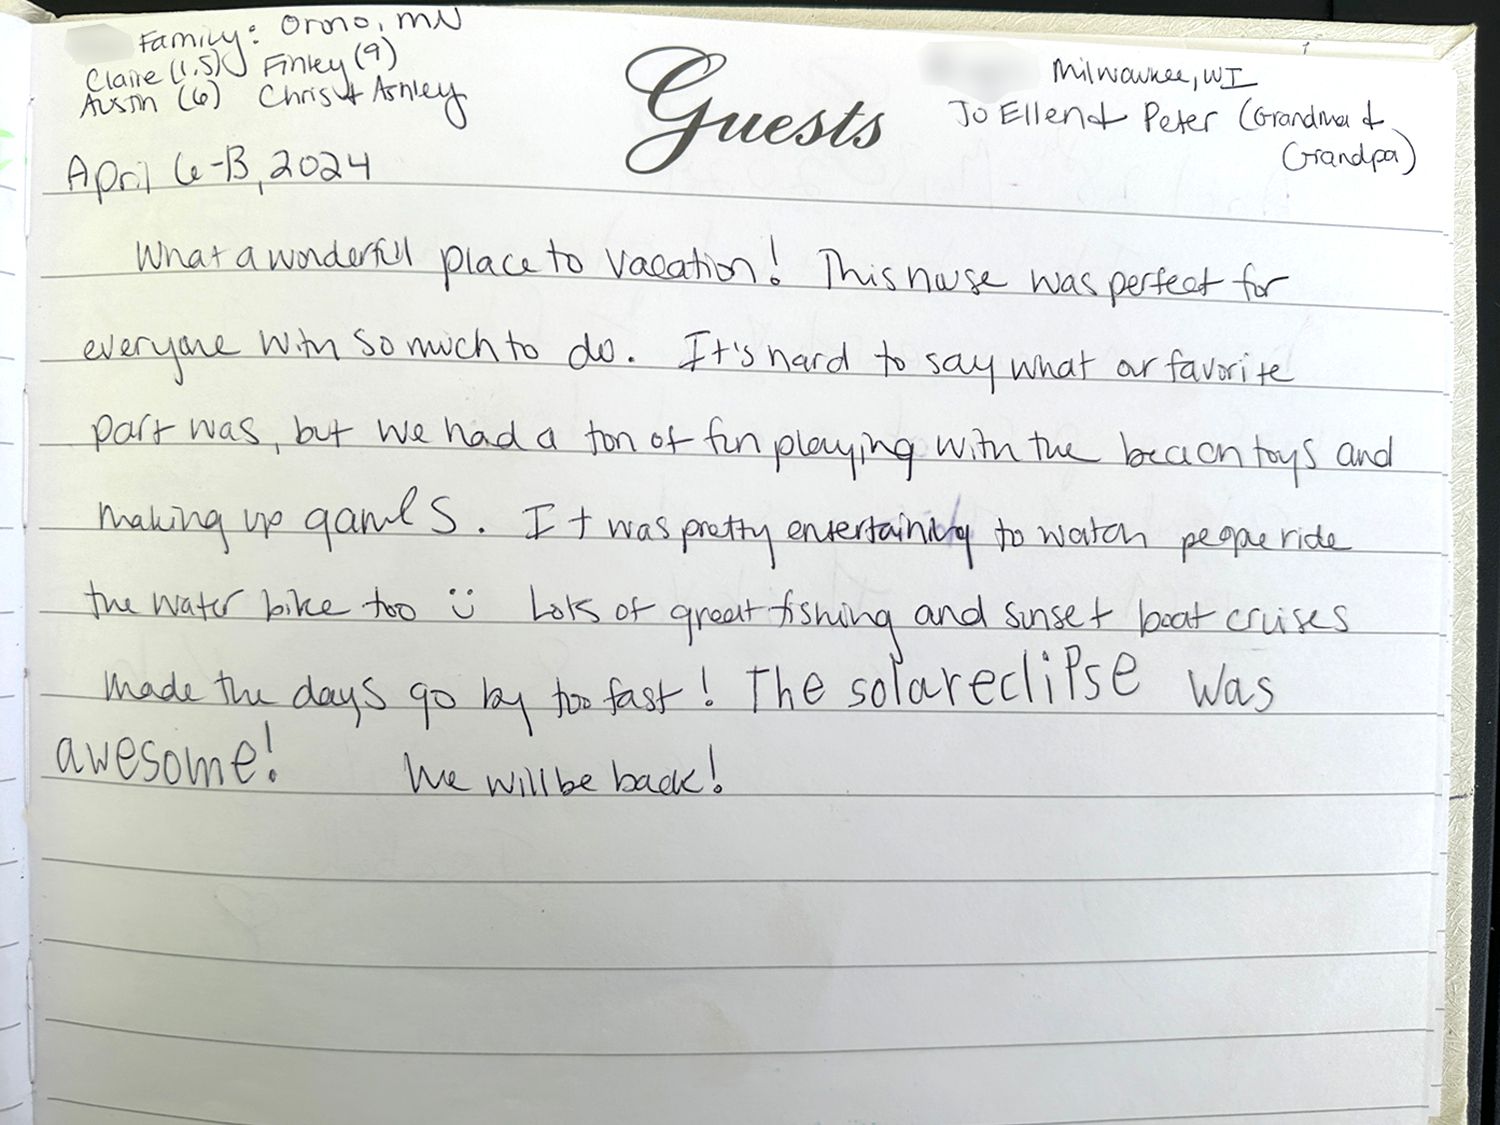 Family: Orono, MN
Claire (1.5) Finley (9)
Austin (6) Chris & Ashley
Guests
Milwaukee, WI
Jo Ellen & Peter (Grandma &
Grandpa)
April 6-13, 2024
What a wonderful place to vacation! This house was perfect for
everyone with so much to do. It's hard to say what our favorite
part was, but we had a ton of fun playing with the beach toys and
making up games. It was pretty entertaining to watch people ride
the water bike too ü Lots of great fishing and sunset boat cruises
made the days go by too fast! The solar eclipse was
awesome! We will be back!